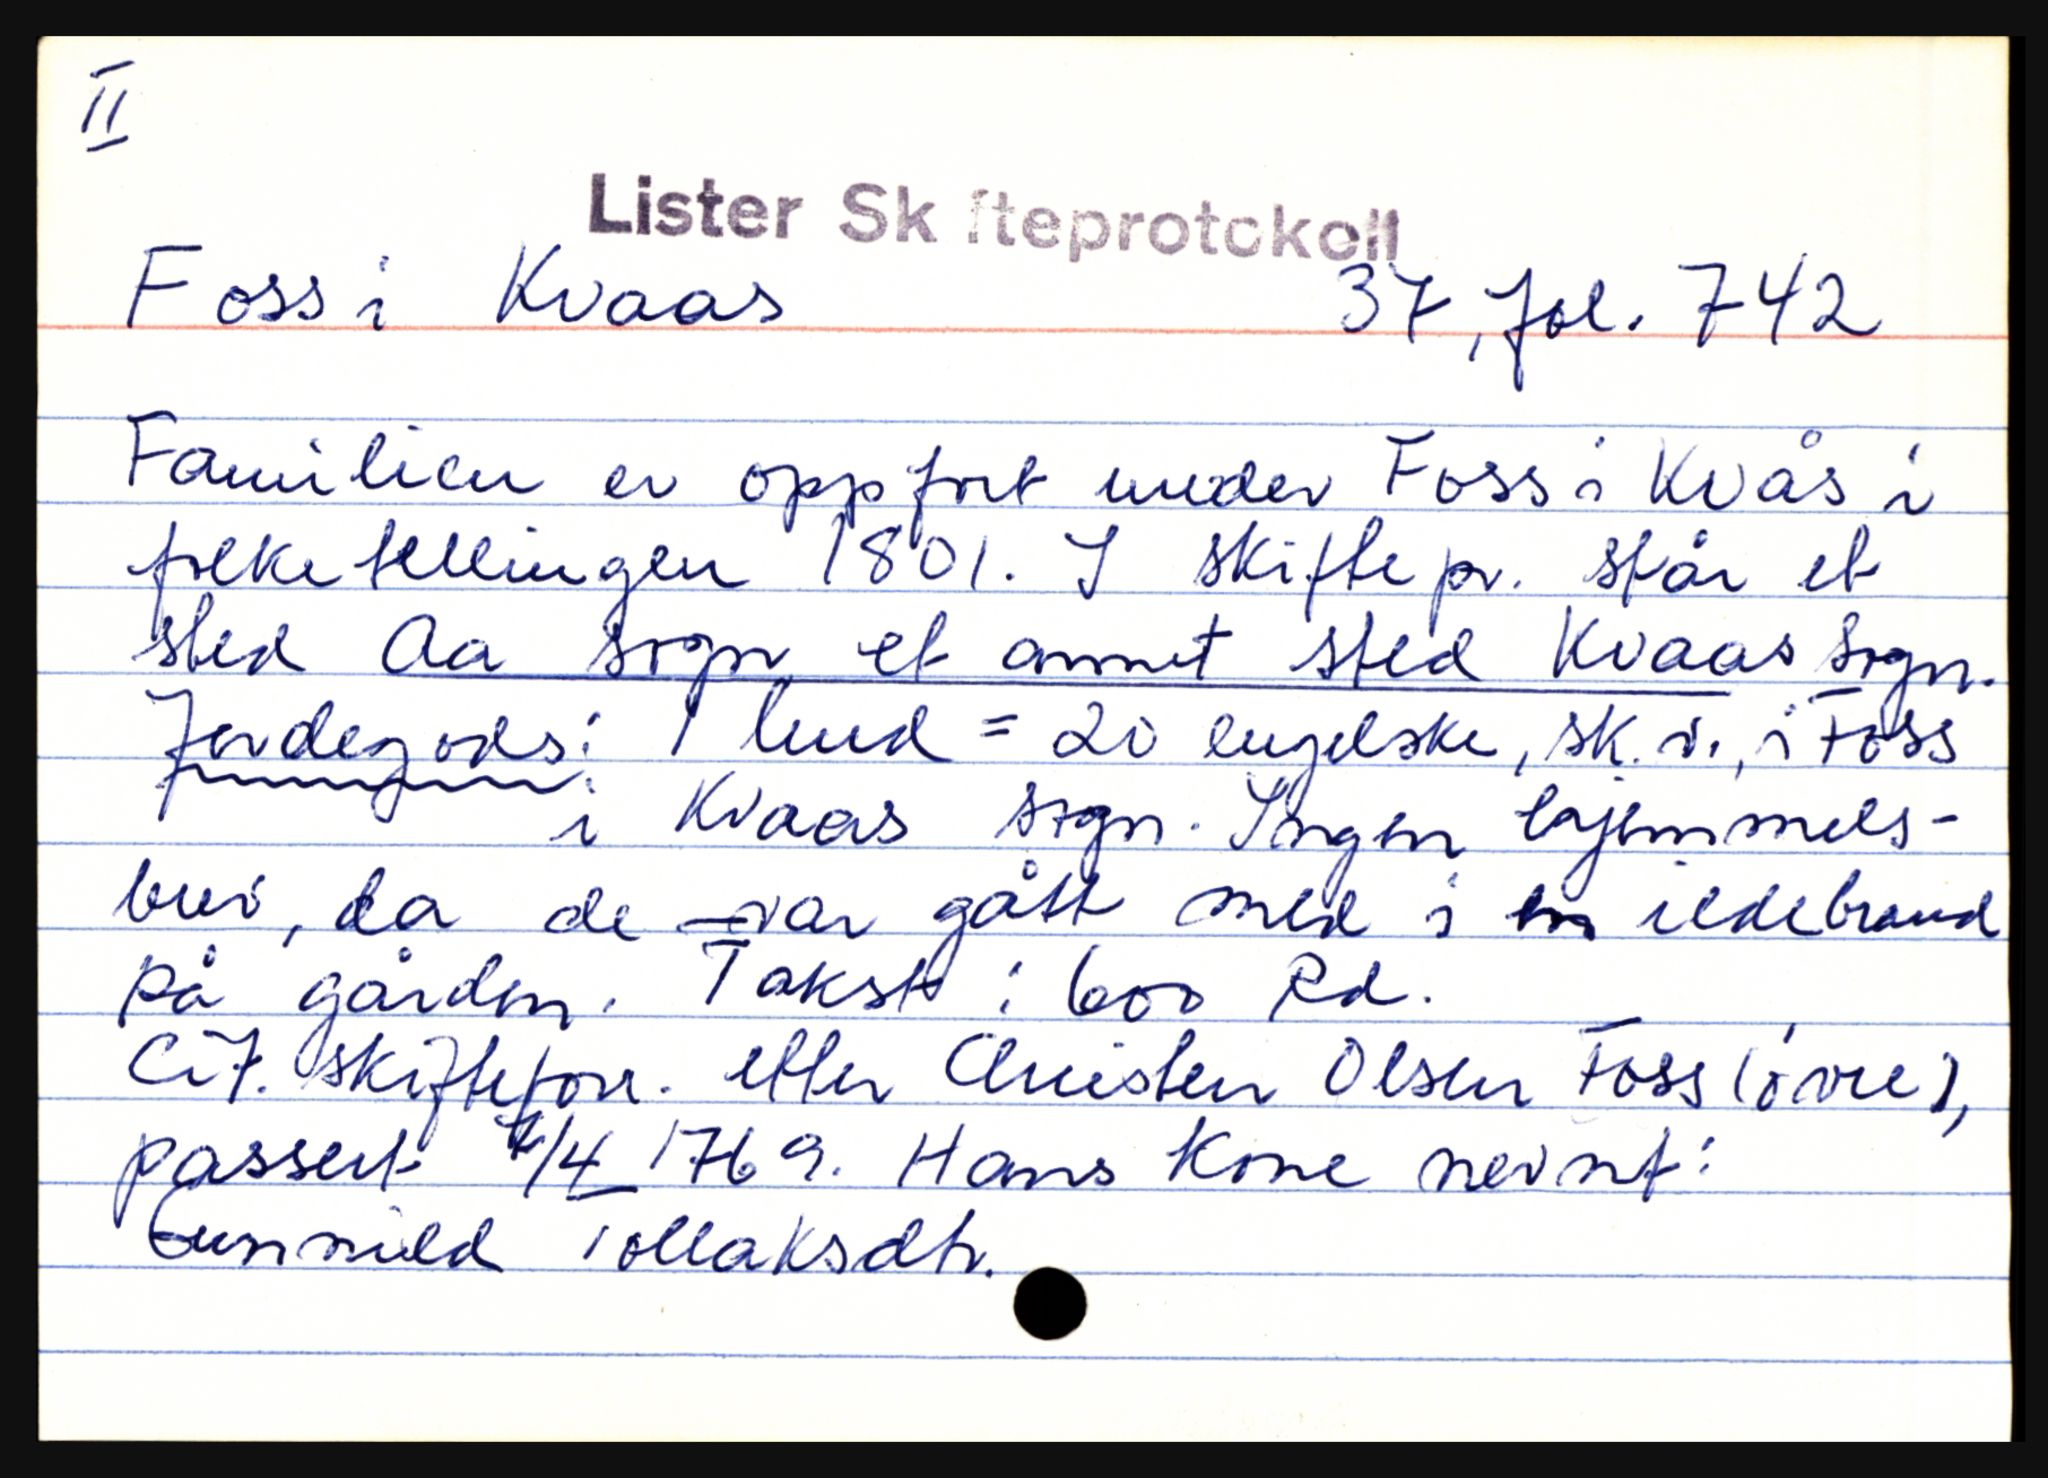 II
Lister Skifteprotokoll
Foss i Kvaas 37, fol. 742
Familien er oppført under Foss i Kvås i
folketellingen 1801. I skiftepr. står et
sted Aa sogn et annet sted Kvaas sogn.
Jordegods: 1 hud = 20 engelske, sk. v., i Foss
i Kvaas sogn. Ingen hjemmels-
brev, da de var gått med i en ildebrand
på gården. Takst: 600 Rd.
Cit. skifteforr. etter Christen Olsen Foss (øvre),
passert 4/4 1769. Hans kone nevnt:
Gunnild Tollaksdtr.